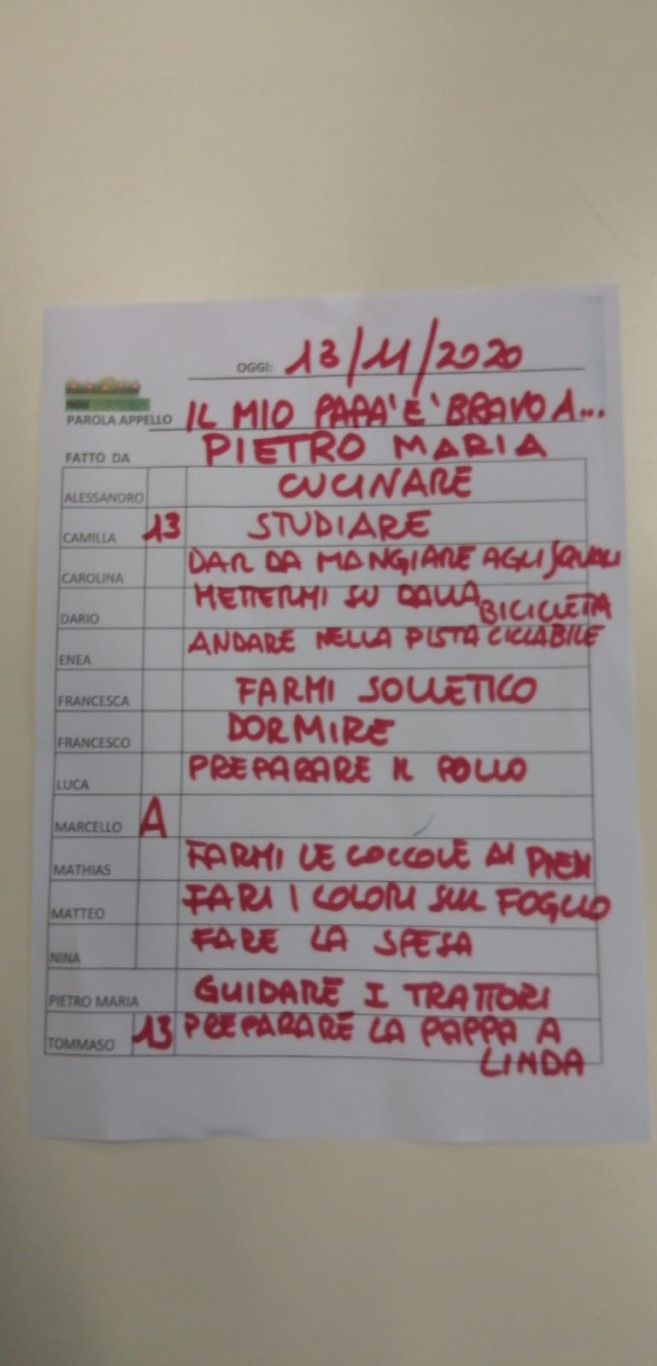 OGGI: 13/11/2020
PAROLA APPELLO IL MIO PAPA' E' BRAVO A...
FATTO DA PIETRO MARIA
ALESSANDRO CUCINARE
CAMILLA 13 STUDIARE
CAROLINA DAR DA MANGIARE AGLI SQUALI
DARIO METTERMI SU DALLA BICICLETTA
ENEA ANDARE NELLA PISTA CICLABILE
FRANCESCA FARMI SOLLETICO
FRANCESCO DORMIRE
LUCA PREPARARE IL POLLO
MARCELLO A
MATHIAS FARMI LE COCCOLE AI PIEDI
MATTEO FARE I COLORI SUL FOGLIO
NINA FARE LA SPESA
PIETRO MARIA GUIDARE I TRATTORI
TOMMASO 13 PREPARARE LA PAPPA A
LINDA